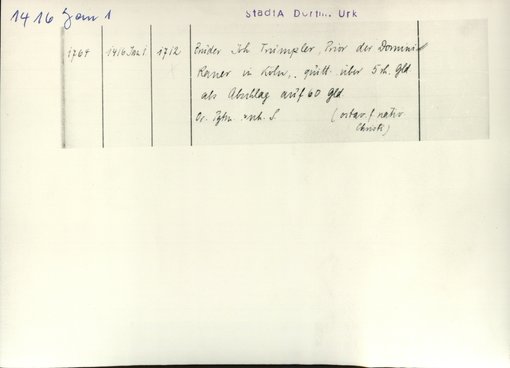 1416 Jan 1
StadtA Dortm. Urk
1764 1416 Jan 1 1712 Bruder Joh Trümpler, Prior der Domini
kaner in Köln, quitt. über 5 rh. Gld
als Abschlag auf 60 Gld.
Or. anh. S. (octav. f. nativ.
Christi)